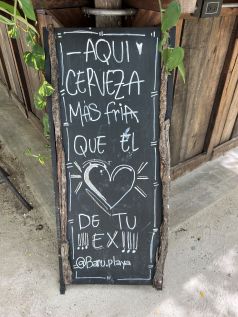 -AQUI
CERVEZA
MAS fria
QUE ÉL
DE TU
!!!! EX!!!!
@Baru.playa